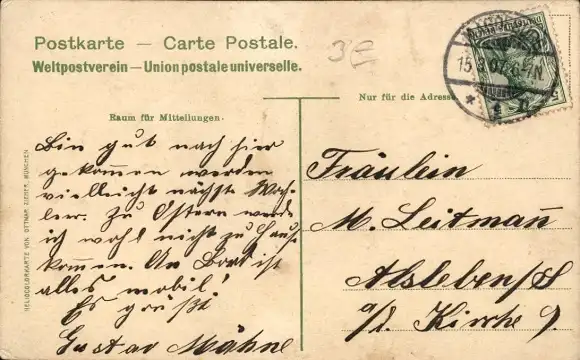 Postkarte — Carte Postale.
Weltpostverein — Union postale universelle.
3E
15.3.07.
Nur für die Adresse
Raum für Mitteilungen.
Bin gut nach hier
gekommen werden
vielleicht nächste Woch
leer. Zu Ostern werde
ich wohl nicht zu Hause
kommen. An Bord ist
alles mobil!
Es grüßt
Gustav Mähne
Fräulein
M. Leitmann
Alsleben/S
a/d. Kirche 9.
HELIOCOLORKARTE VON OTTMAR ZIEHER, MÜNCHEN